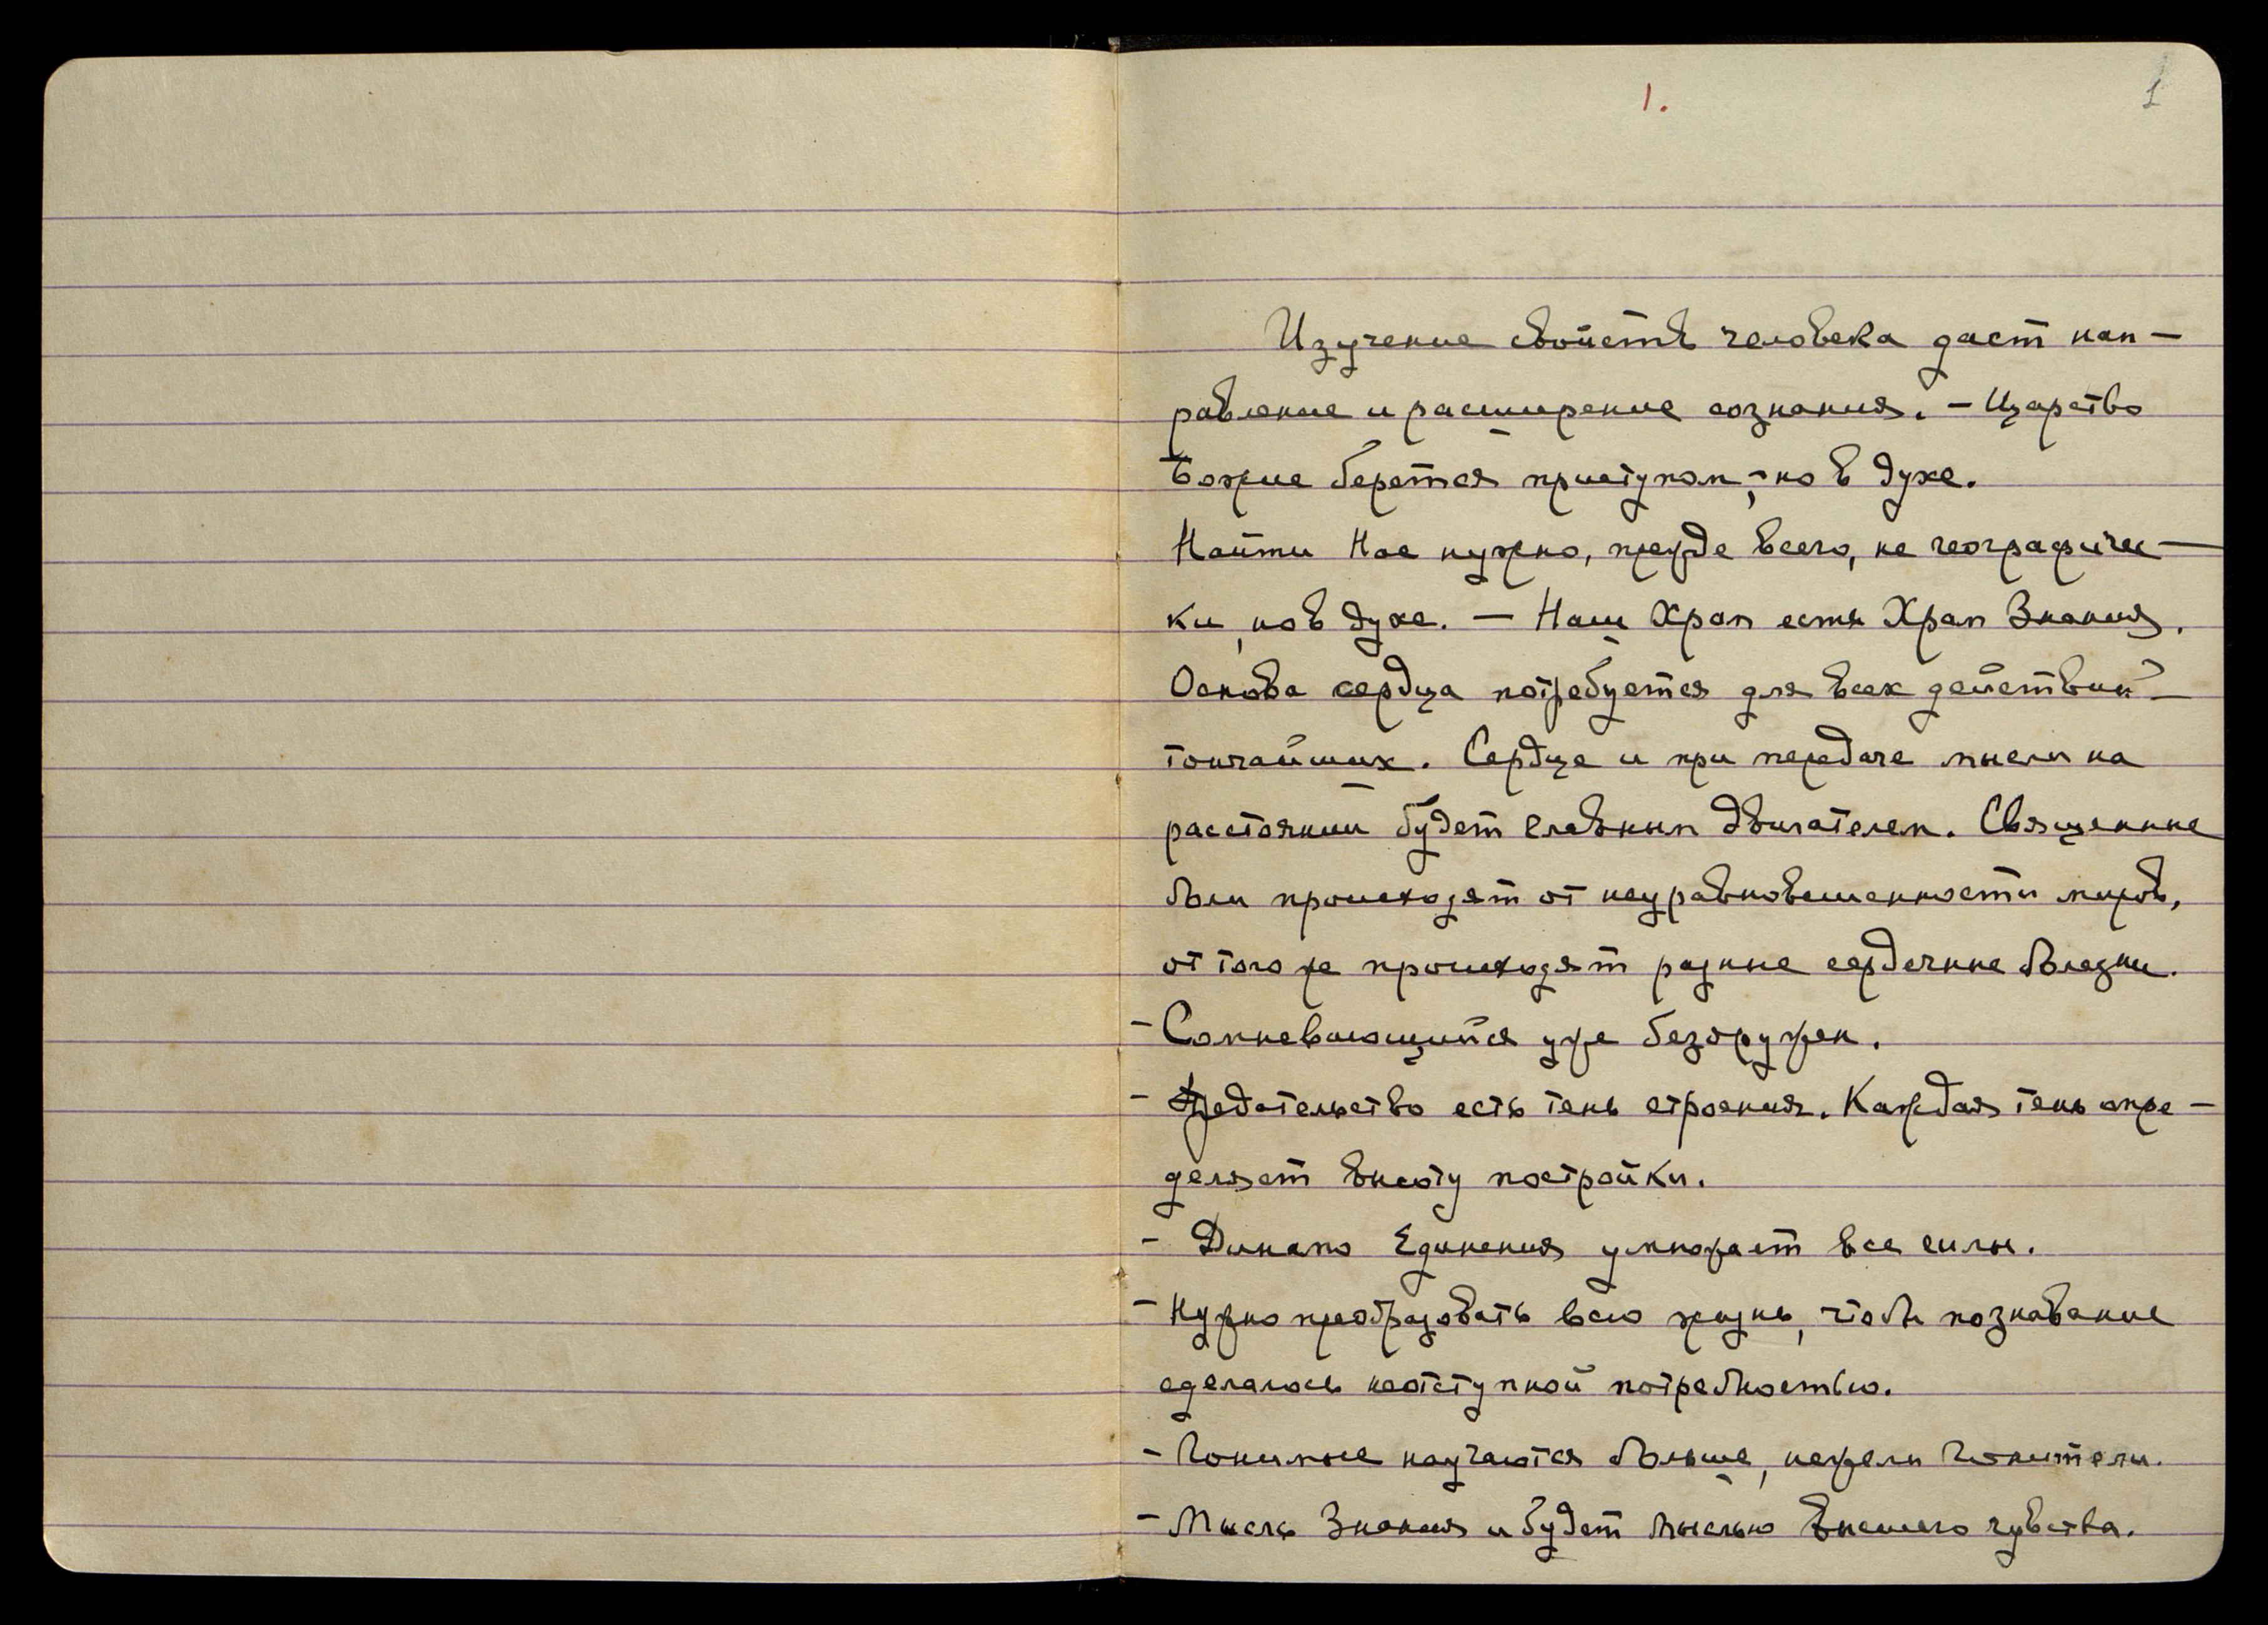 1.
1
Изучение свойств человека даст нап-
равление и расширение сознания. - Царство
Божие берется приступом, - но в духе.
Найти Нас нужно, прежде всего, не географичес-
ки, но в духе. - Наш Храм есть Храм Знания.
Основа сердца потребуется для всех действий -
тончайших. Сердце и при передаче мысли на
расстоянии будет главным двигателем. Священные
боли происходят от неуравновешенности миров,
от того же происходят разные сердечные болезни.
- Сомневающийся уже безоружен.
- Предательство есть тень строения. Каждая тень опре-
деляет высоту постройки.
- Динамо Единения умножает все силы.
- Нужно преобразовать всю жизнь, чтобы познавание
сделалось неотступной потребностью.
- Гонимые научаются больше, нежели Гонители.
- Мысль Знания и будет мыслью Высшего чувства.